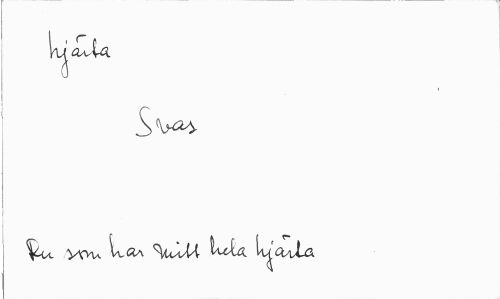 hjärta
Svas
Du som har mitt hela hjärta